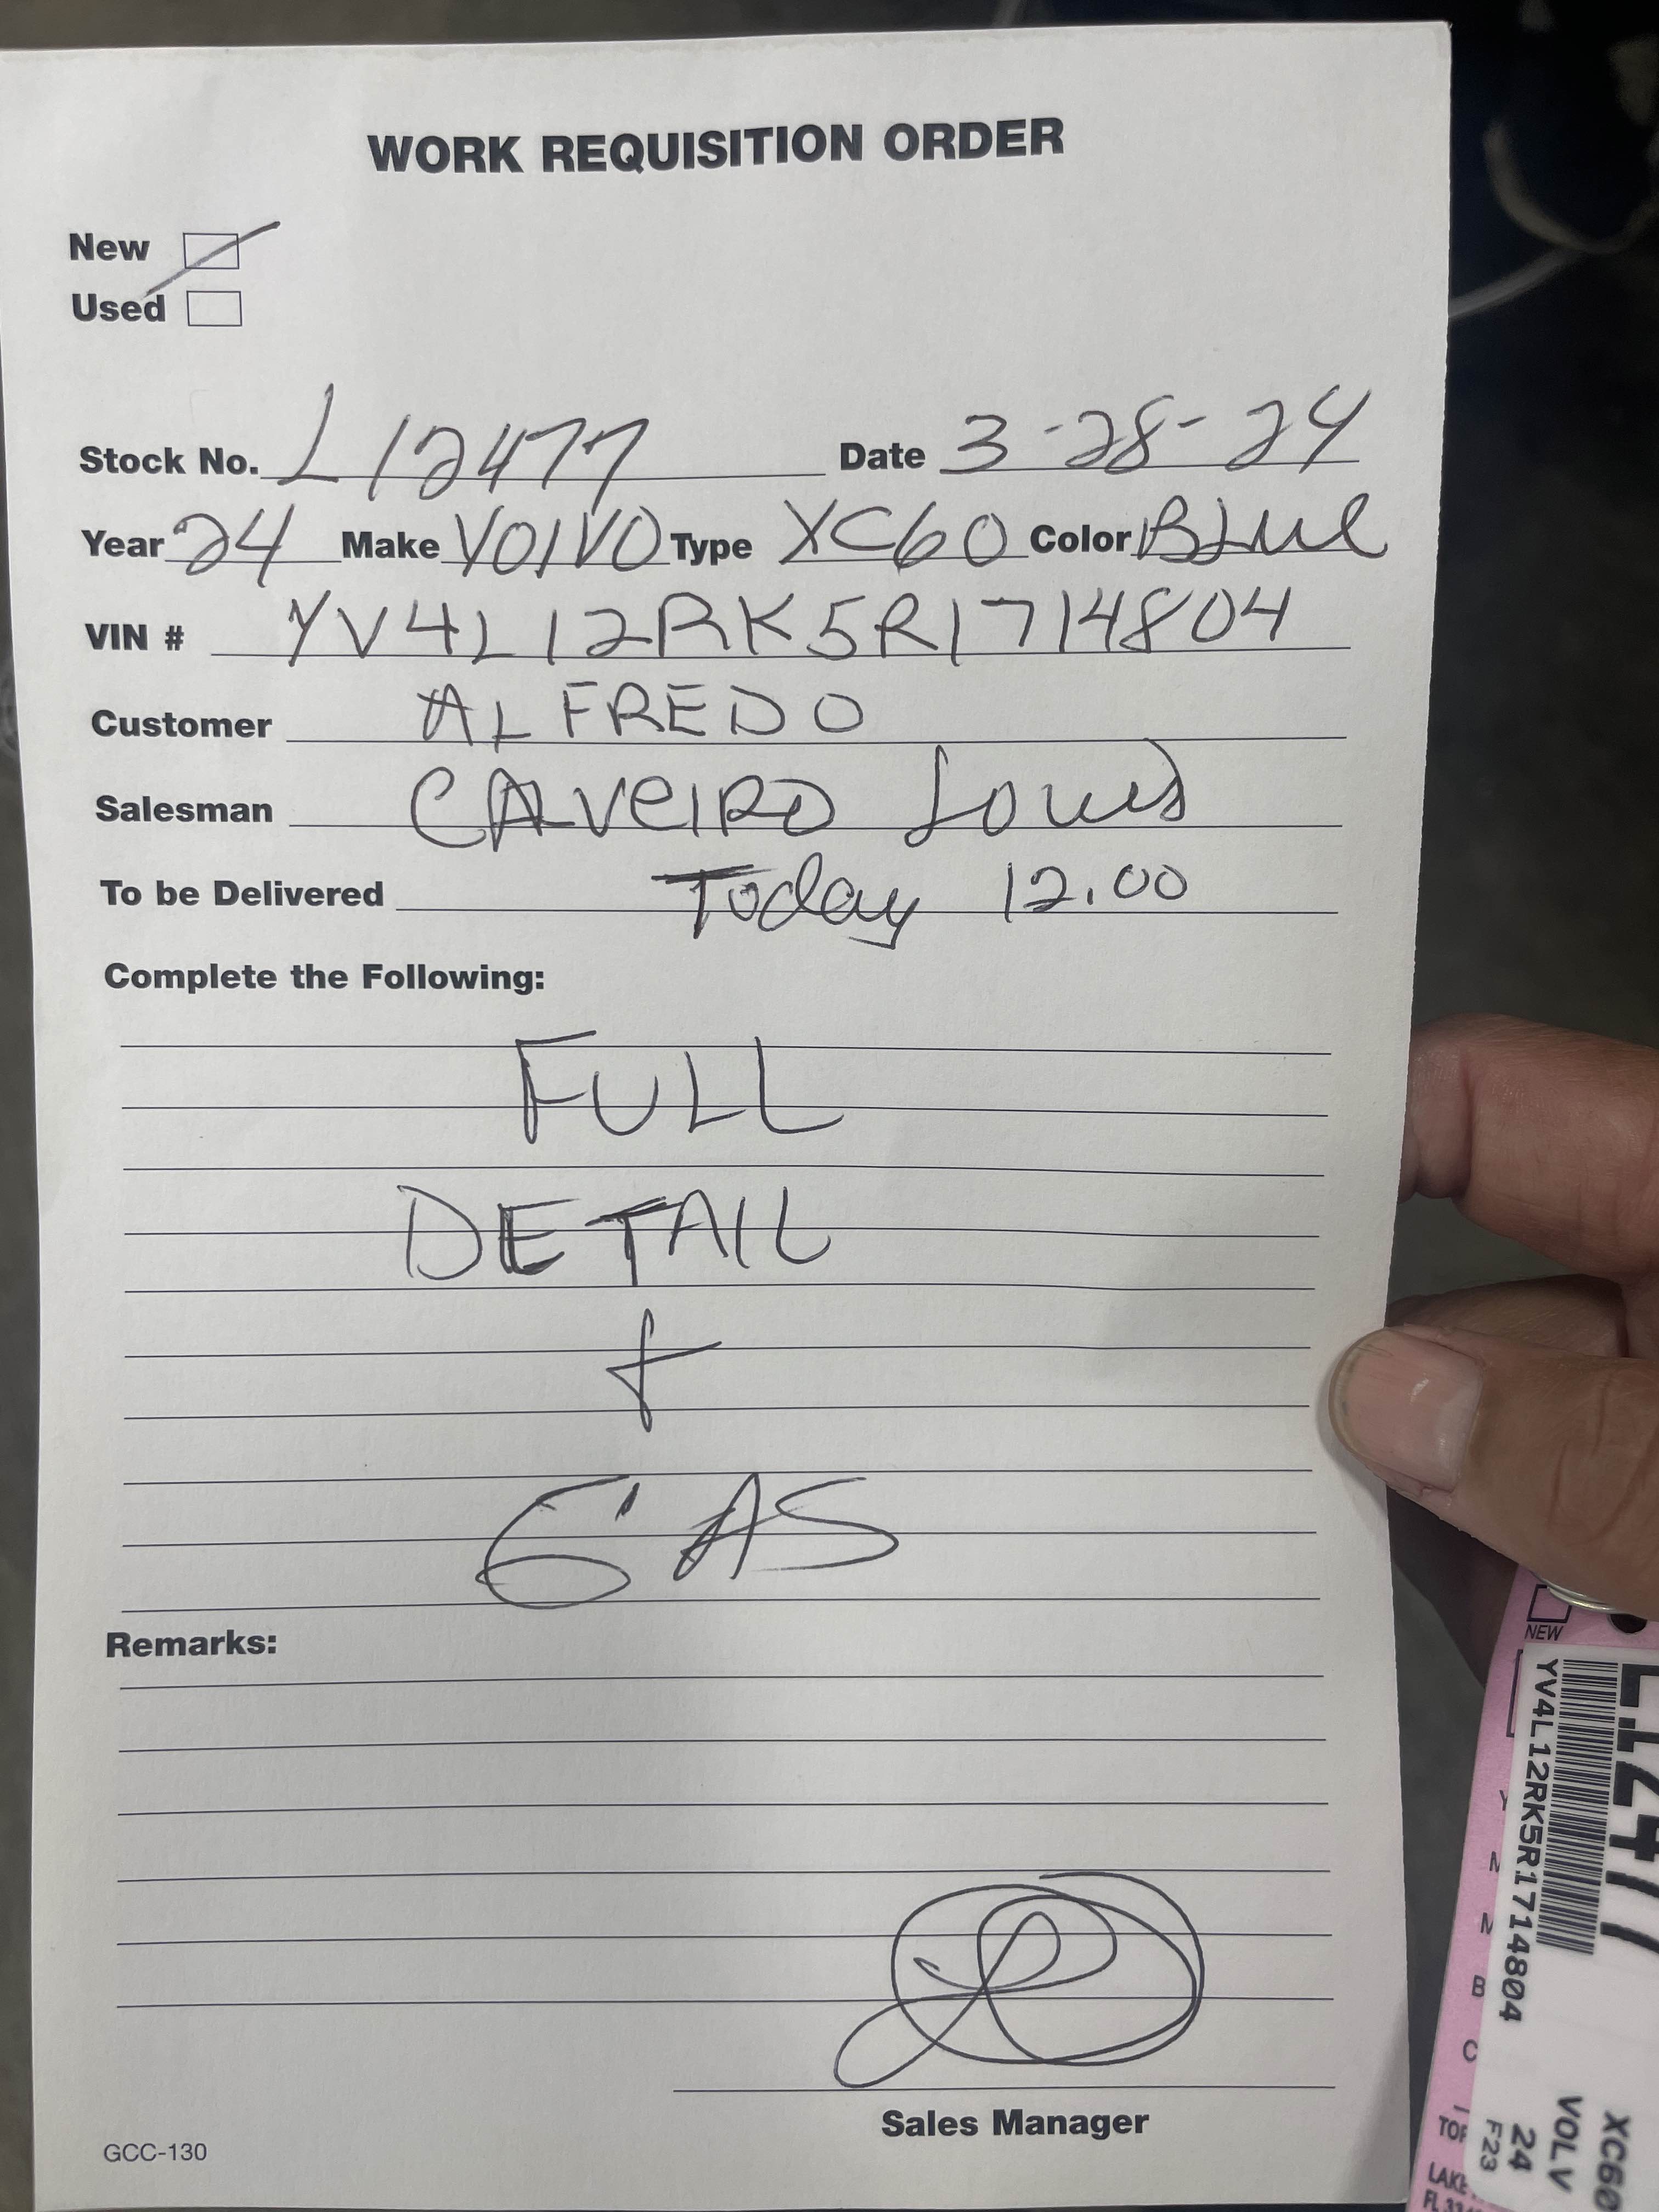 WORK REQUISITION ORDER
New
Used
Stock No. L12477 Date 3-28-24
Year 24 Make VOLVO Type XC60 Color BLUE
VIN # YV4L12RK5R1714804
Customer ALFREDO
Salesman CALVEIRO Louis
To be Delivered Today 12.00
Complete the Following:
FULL
DETAIL
+
GAS
Remarks:
Sales Manager
GCC-130
NEW
L12477
YV4L12RK5R1714804
XC60
VOLV
24
F23